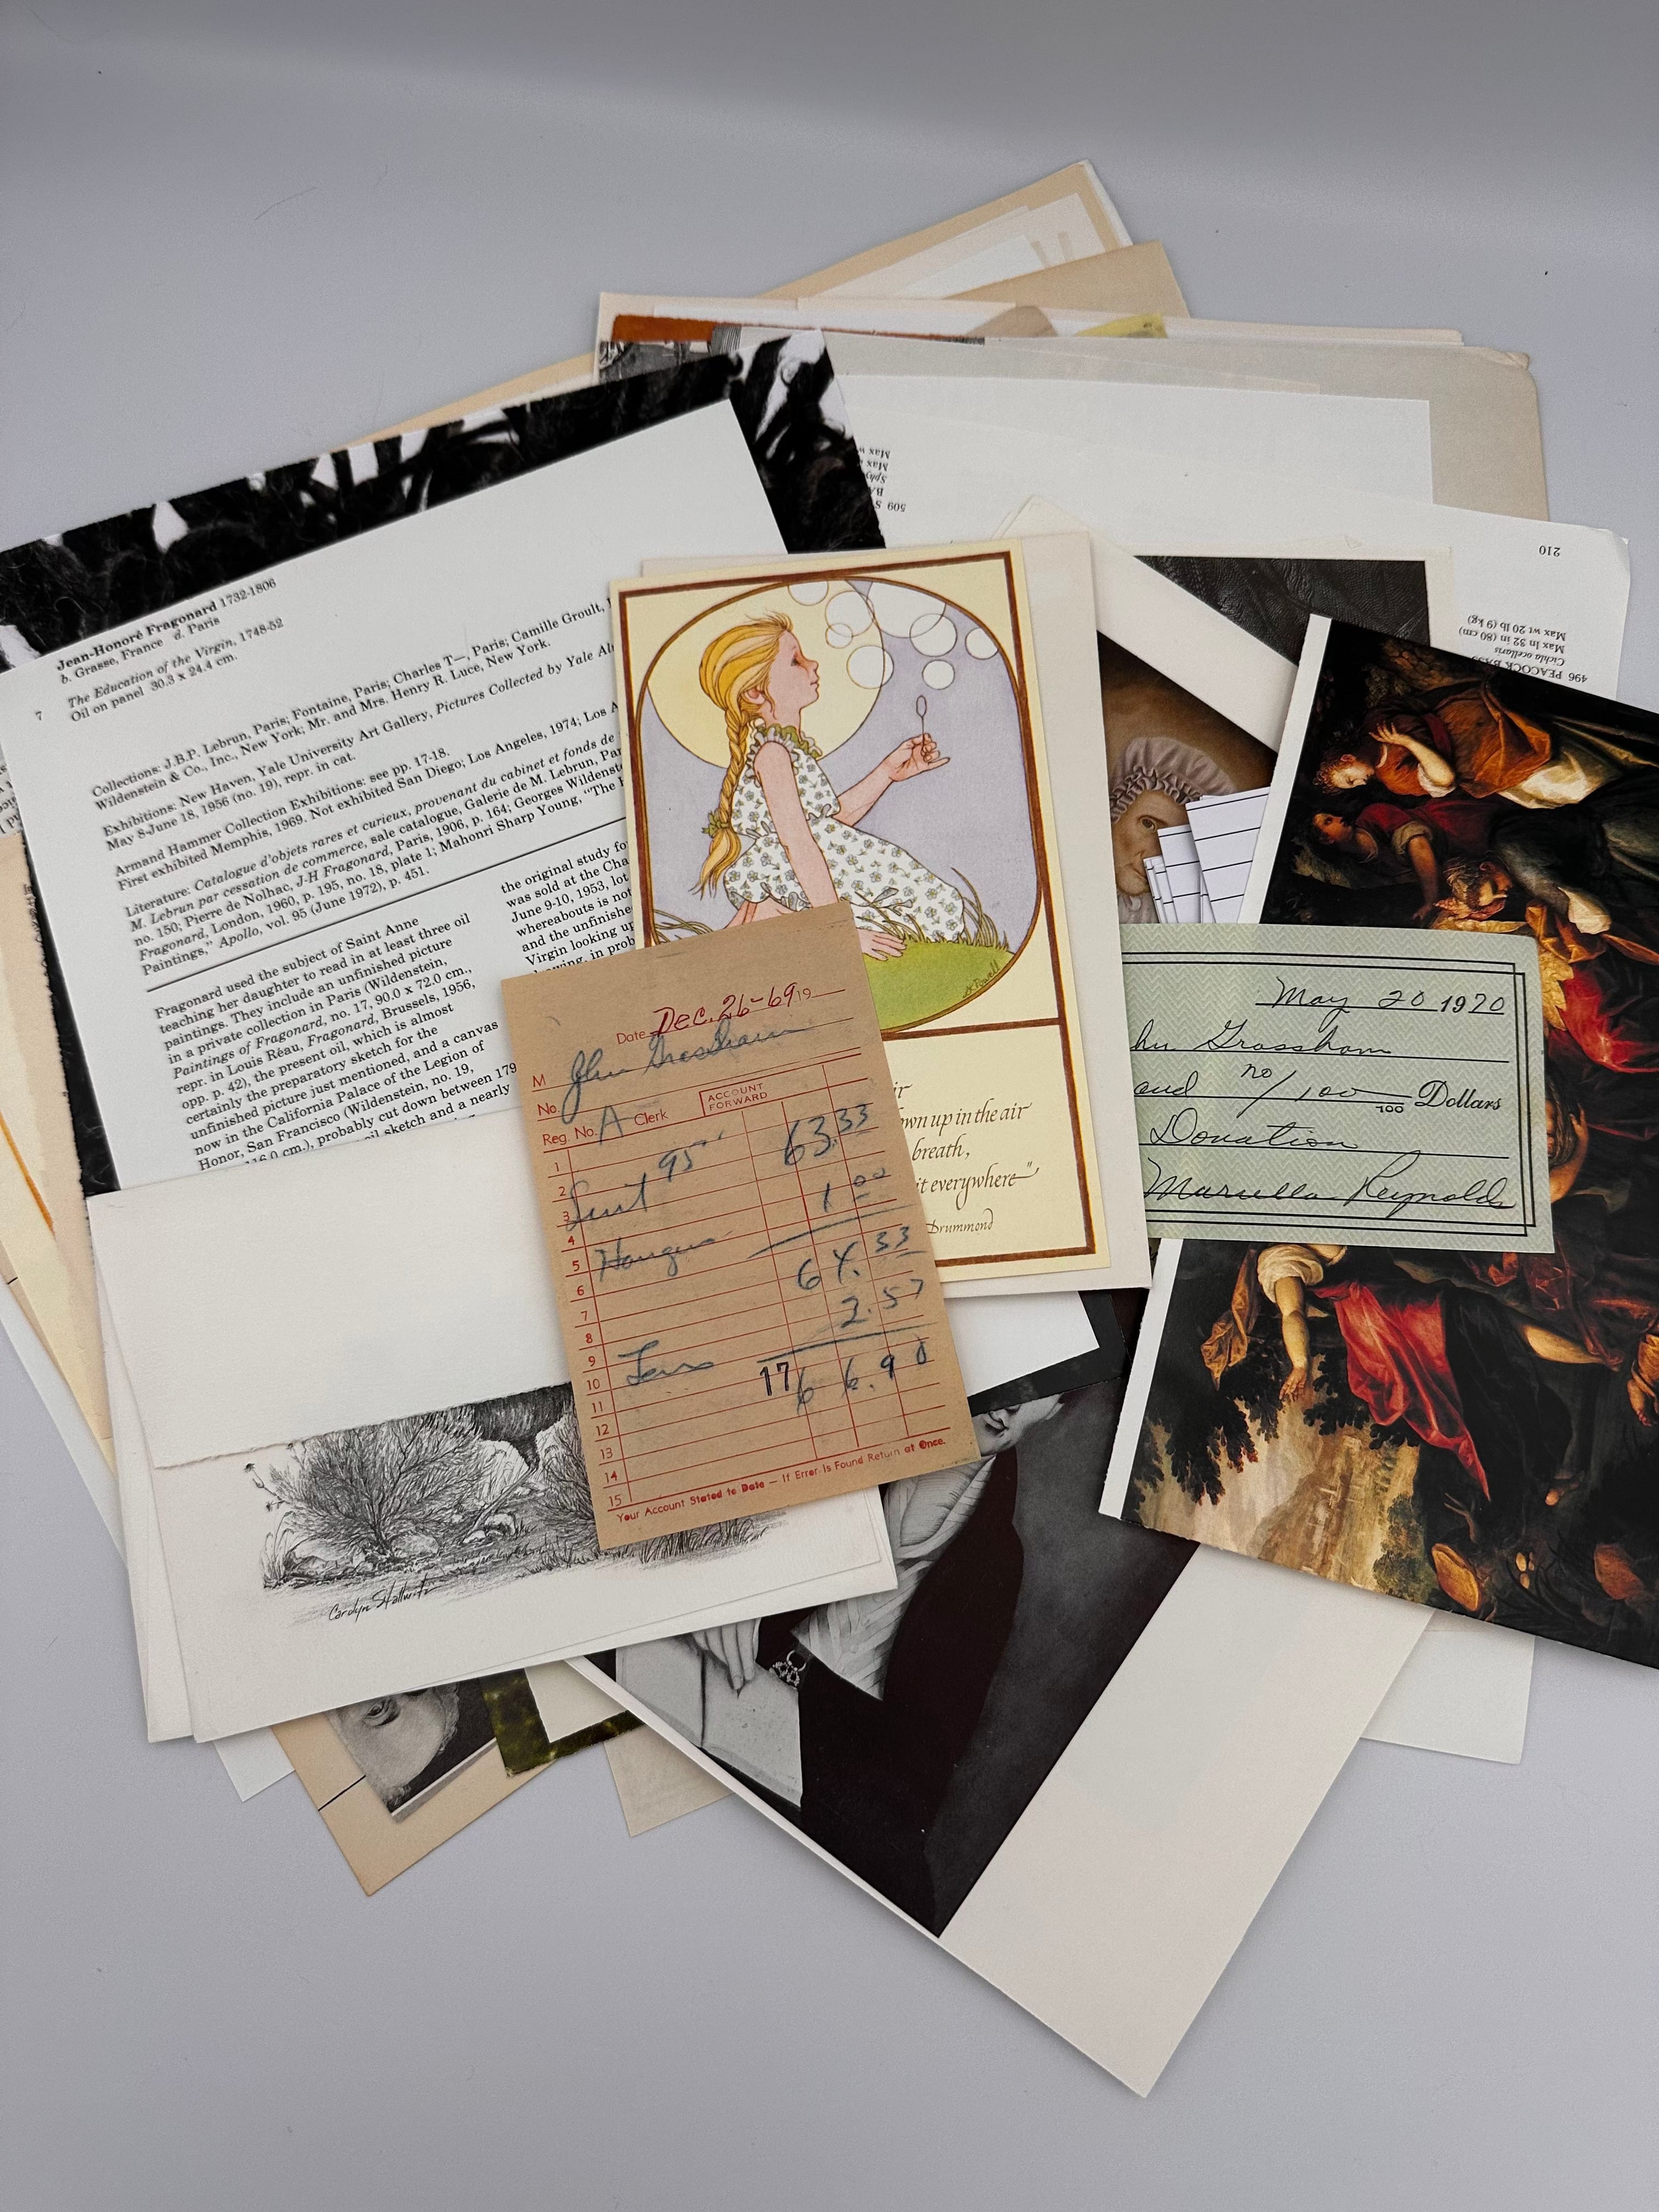 Jean-Honoré Fragonard 1732-1806
b. Grasse, France d. Paris
7
The Education of the Virgin, 1748-52
Oil on panel 30.3 x 24.4 cm.
Collections: J.B.P. Lebrun, Paris; Fontaine, Paris; Charles T—, Paris; Camille Groult,
Wildenstein & Co., Inc., New York; Mr. and Mrs. Henry R. Luce, New York.
Exhibitions: New Haven, Yale University Art Gallery, Pictures Collected by Yale
May 8-June 18, 1956 (no. 19), repr. in cat.
Armand Hammer Collection Exhibitions: see pp. 17-18.
First exhibited Memphis, 1969. Not exhibited San Diego; Los Angeles, 1974; Los
Literature: Catalogue d'objets rares et curieux, provenant du cabinet et fonds de
M. Lebrun par cessation de commerce, sale catalogue, Galerie de M. Lebrun,
no. 150; Pierre de Nolhac, J-H Fragonard, Paris, 1906, p. 164; Georges
Fragonard, London, 1960, p. 195, no. 18, plate 1; Mahonri Sharp Young, "The
Paintings," Apollo, vol. 95 (June 1972), p. 451.
Fragonard used the subject of Saint Anne
teaching her daughter to read in at least three oil
paintings. They include an unfinished picture
in a private collection in Paris (Wildenstein,
Paintings of Fragonard, no. 17, 90.0 x 72.0 cm.,
repr. in Louis Réau, Fragonard, Brussels, 1956,
opp. p. 42), the present oil, which is almost
certainly the preparatory sketch for the
unfinished picture just mentioned, and a canvas
now in the California Palace of the Legion of
Honor, San Francisco (Wildenstein, no. 19,
cm.), probably cut down between 179
sketch and a nearly
the original study
was sold at the
June 9-10, 1953, lot
whereabouts is
and the unfinished
Virgin looking
in
Date Dec. 26-69 19
M John Grassham
No.
Reg. No. A Clerk ACCOUNT FORWARD
1
2 95 63.33
3 Suit
4 1.00
5 Hangers
6 64.33
7
8 2.57
9
10 17 66.90
11
12
13
14
15
Your Account Stated to Date — If Error Is Found Return at Once.
up in the air
breath,
it everywhere"
Drummond
G. Powell
May 20 1970
Grassham
and no/100 100 Dollars
Donation
Reynolds
Carolyn Stallwitz
509
Max
Max
210
496 PEACOCK
Cichla ocellaris
Max ln 32 in (80 cm)
Max wt 20 lb (9 kg)